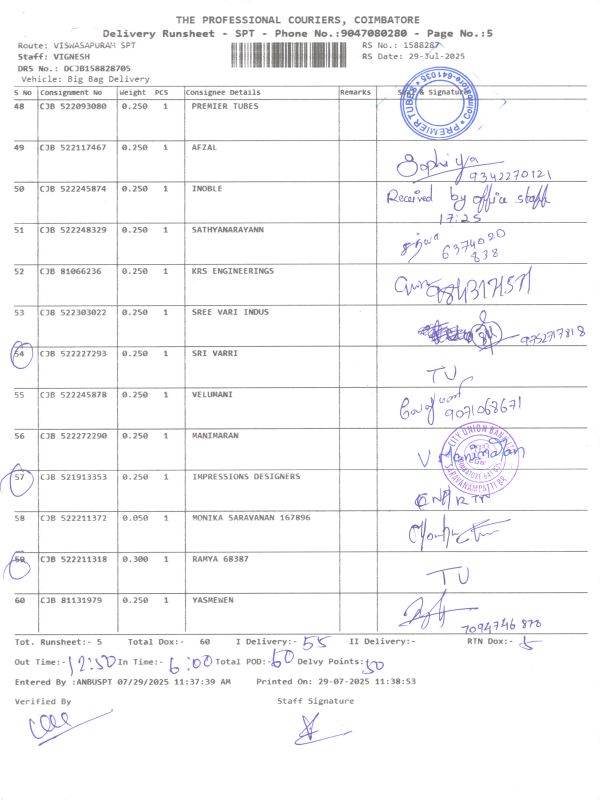 THE PROFESSIONAL COURIERS, COIMBATORE
Delivery Runsheet - SPT - Phone No.:9047080280 - Page No.:5
Route: VISWASAPURAM SPT RS No.: 1588287
Staff: VIGNESH RS Date: 29-Jul-2025
DRS No.: DCJB158828705
Vehicle: Big Bag Delivery
S No Consignment No Weight PCS Consignee Details Remarks Seal & Signature
48 CJB 522093080 0.250 1 PREMIER TUBES PREMIER TUBES Coimbatore-641035
49 CJB 522117467 0.250 1 AFZAL Sophiya
9342270121
50 CJB 522245874 0.250 1 INOBLE Received by office staff
17:25
51 CJB 522248329 0.250 1 SATHYANARAYANN 6374020
838
52 CJB 81066236 0.250 1 KRS ENGINEERINGS
53 CJB 522303022 0.250 1 SREE VARI INDUS 9752717818
54 CJB 522227293 0.250 1 SRI VARRI TU
55 CJB 522245878 0.250 1 VELUMANI வேலுமணி
9071068671
56 CJB 522272290 0.250 1 MANIMARAN V Manimaran CITY UNION BANK SARAVANAMPATTI BR
57 CJB 521913353 0.250 1 IMPRESSIONS DESIGNERS
58 CJB 522211372 0.050 1 MONIKA SARAVANAN 167896
59 CJB 522211318 0.300 1 RAMYA 68387 TU
60 CJB 81131979 0.250 1 YASMEWEN 7094746878
Tot. Runsheet:- 5 Total Dox:- 60 I Delivery:- 55 II Delivery:- RTN Dox:- 5
Out Time:- 12:50 In Time:- 6:00 Total POD:- 60 Delvy Points: 50
Entered By :ANBUSPT 07/29/2025 11:37:39 AM Printed On: 29-07-2025 11:38:53
Verified By Staff Signature